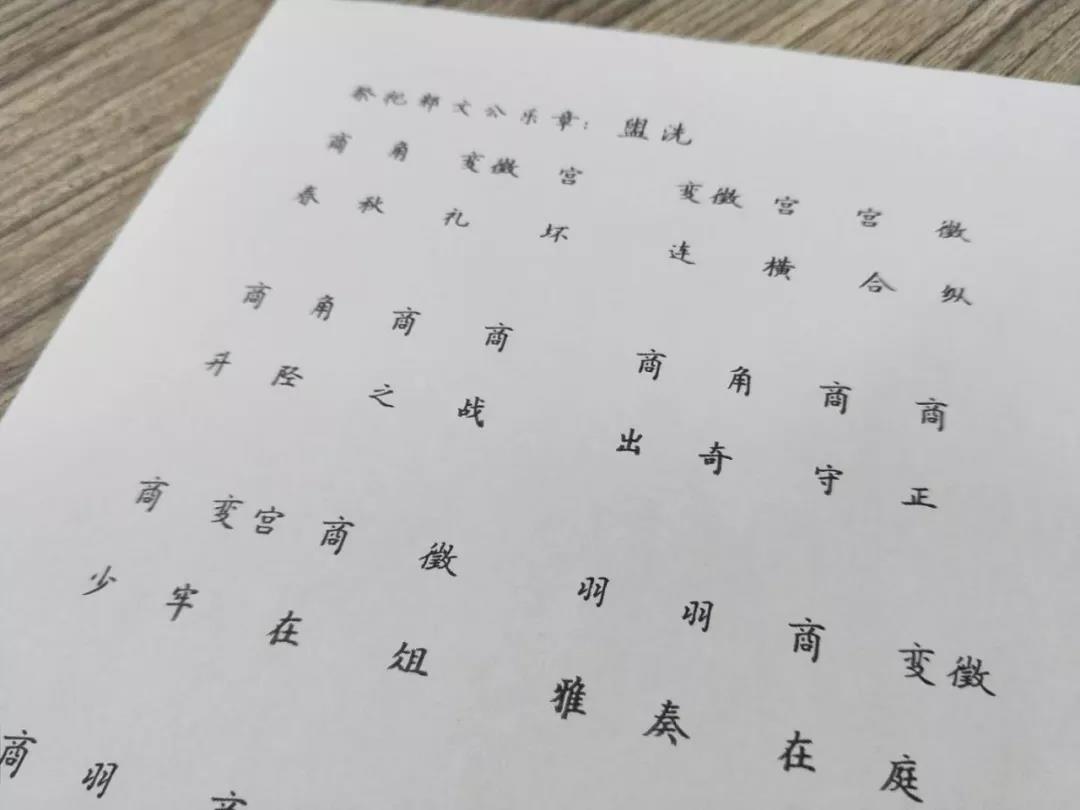 祭祀邾文公乐章：盥洗
商 角 变徵 宫 变徵 宫 宫 徵
春 秋 礼 坏 连 横 合 纵
商 角 商 商 商 角 商 商
升 陉 之 战 出 奇 守 正
商 变宫 商 徵 羽 羽 商 变徵
少 牢 在 俎 雅 奏 在 庭
商 羽